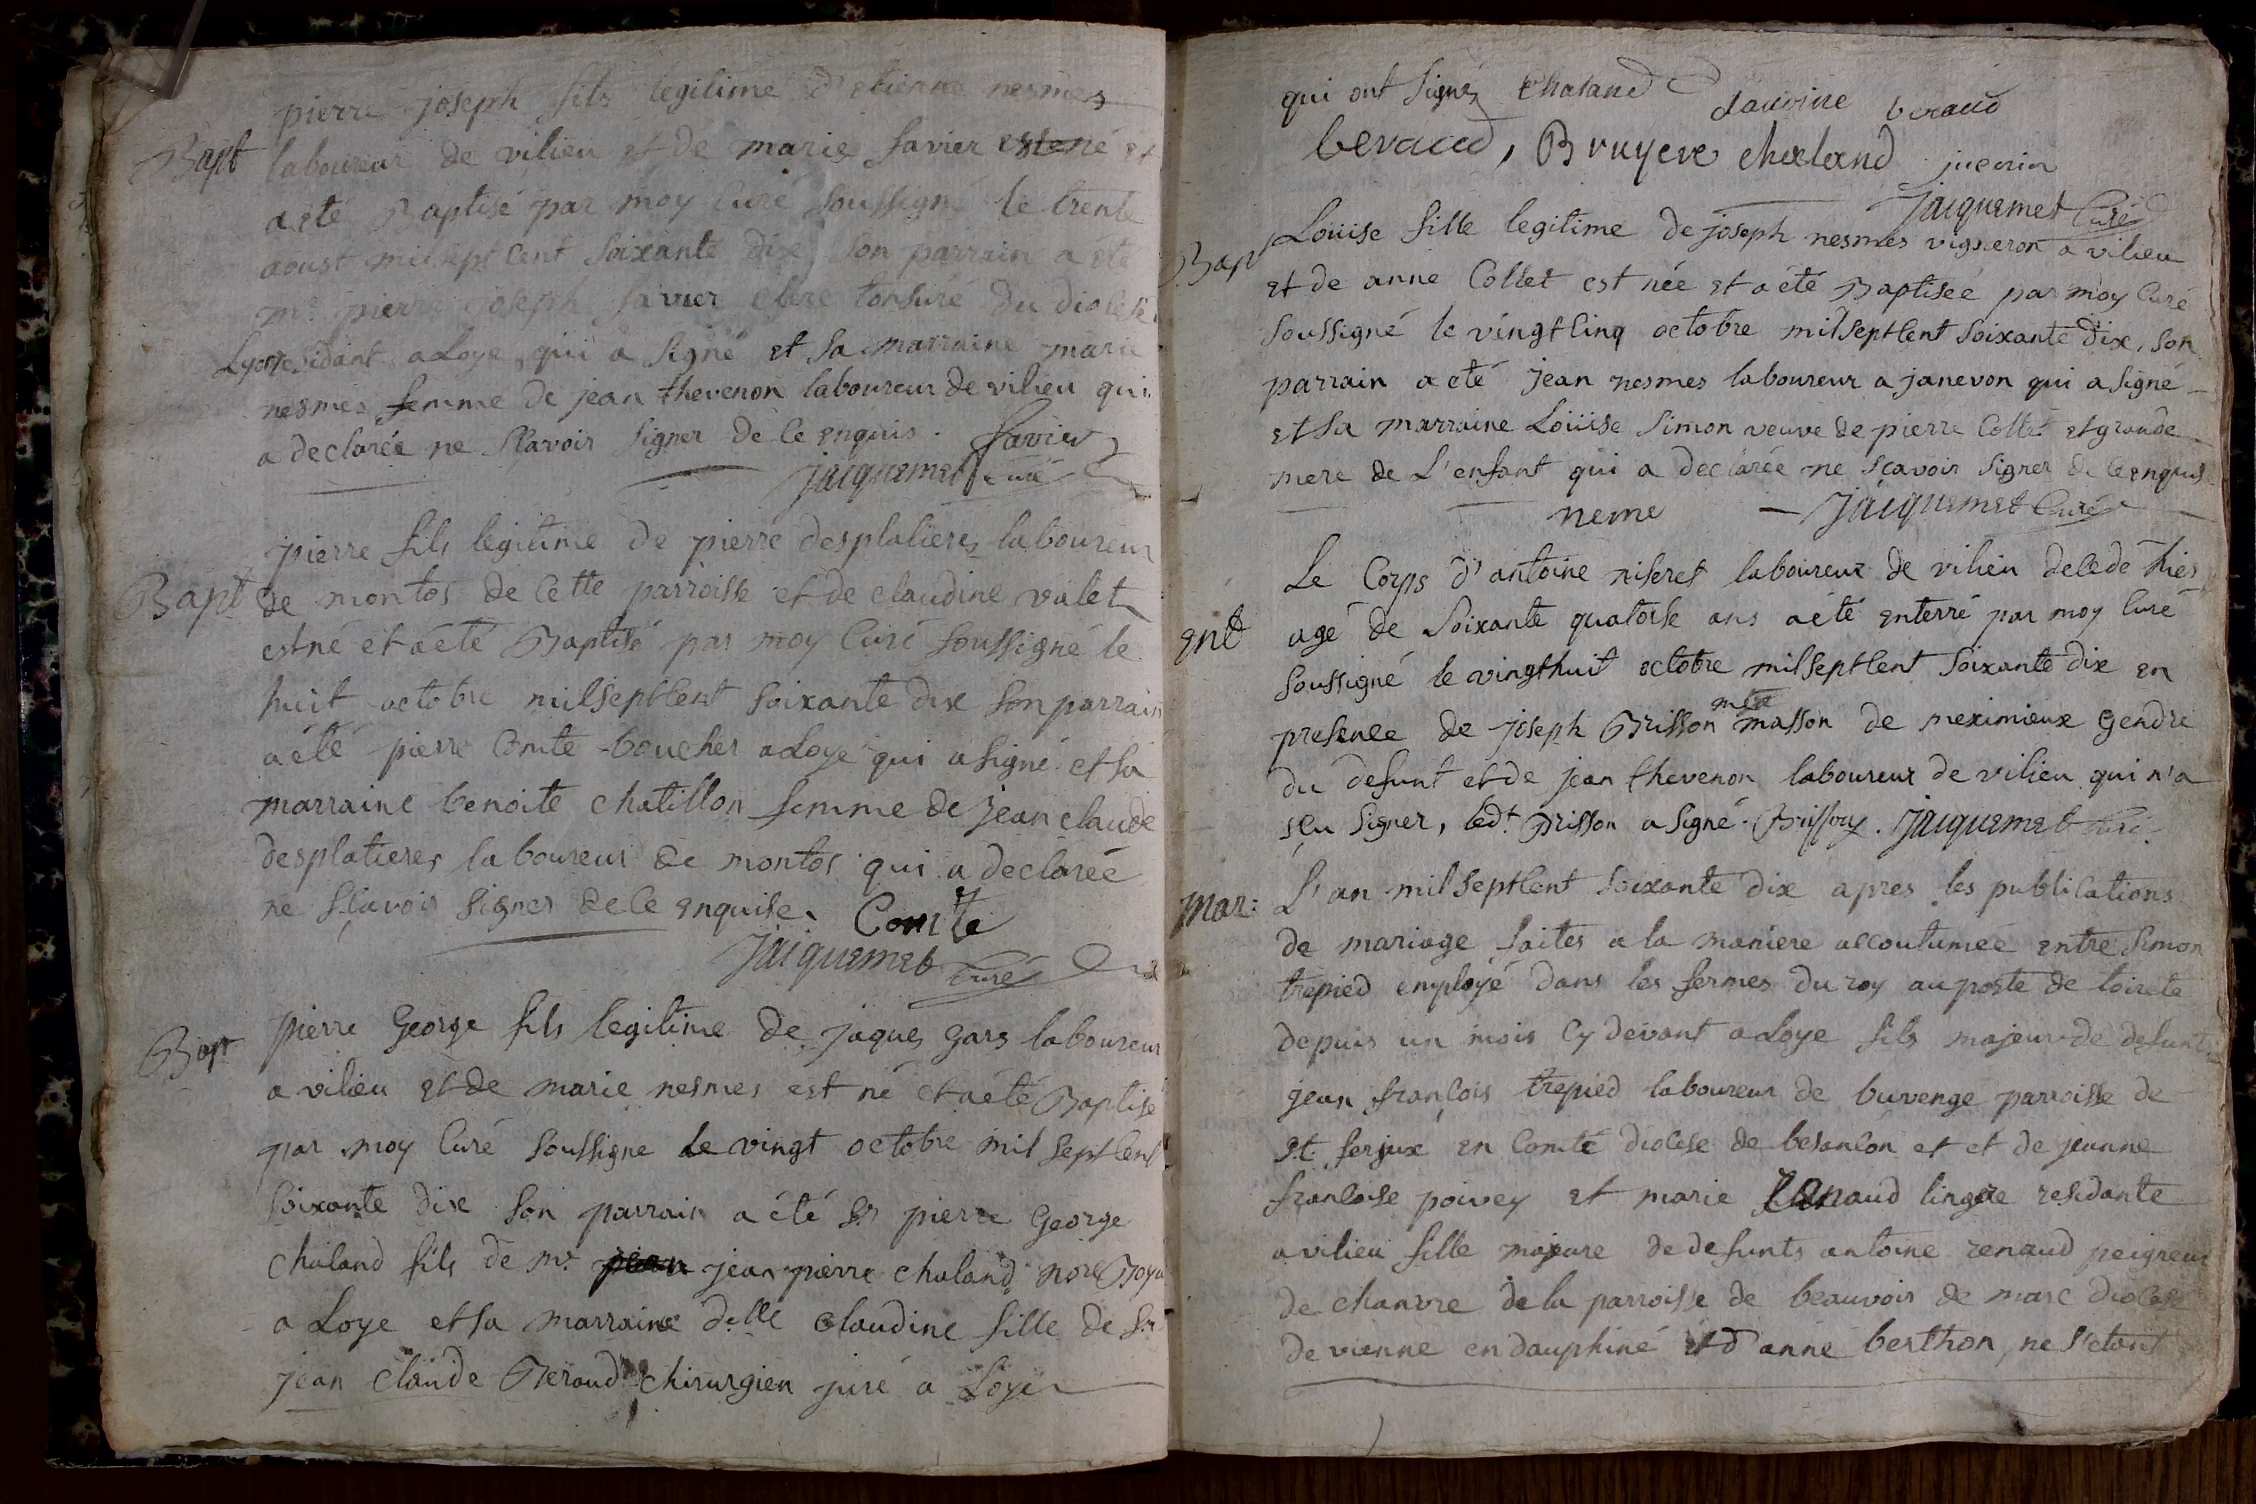 pierre joseph fils legitime d'etienne nesmes
Bapt laboureur de vilieu et de marie savier est né et
a eté Baptisé par moy Curé soussigné le trente
aoust mil sept Cent soixante dix, son parrain a eté
mr. pierre joseph savier clerc tonsuré du diocese
Lyon residant a Loye qui a signé et sa marraine marie
nesmes femme de jean thevenon laboureur de vilieu qui
a declarée ne sçavoir signer de ce enquis. Savier
jacquemet Curé
pierre fils legitime de pierre desplatieres laboureur
Bapt de montos de Cette parroisse et de claudine valet
est né et a eté Baptisé par moy Curé soussigné le
huit octobre mil sept Cent soixante dix son parrain
a été pierre Comte boucher a Loye qui a signé et sa
marraine benoite chatillon femme de jean claude
desplatieres laboureur de montos qui a declarée
ne sçavoir signer de ce enquise. Comte
Jacquemet Curé
pierre George fils legitime de jaques gars laboureur
Bapt
a vilieu et de marie nesmes est né et a été Baptisé
par moy Curé soussigne le vingt octobre mil sept Cent
soixante dix son parrain a été sr pierre George
chaland fils de mr. jean jean pierre chaland nore Roya
a Loye et sa marraine delle claudine fille de sr
jean claude Beraud chirurgien juré a Loye
qui ont signés Chaland beraud
beraud, Bruyere chaland
Jacquemet Curé
Loüise fille legitime de joseph nesmes vigneron a vilieu
Bap
et de anne Collet est née et a été Baptisée par moy Curé
soussigné le vingt Cinq octobre mil sept Cent soixante dix, son
parrain a eté jean nesmes laboureur a janevon qui a signé
et sa marraine Loüise simon veuve de pierre Collet et grande
mere de L'enfant qui a declarée ne sçavoir signer de ce enquise
neme Jacquemet Curé
Le Corps d'antoine niseret laboureur de vilieu decedé hier
ent agé de soixante quatorse ans a été enterré par moy Curé
soussigné le vingt huit octobre mil sept Cent soixante dix en
presence de joseph Brisson mtre masson de meximieux gendre
du defunt et de jean thevenon laboureur de vilieu qui n'a
sçu signer, ledt. Brisson a signé. Brisson. Jacquemet Curé
mar: L'an mil sept Cent soixante dix apres les publications
de mariage faites a la maniere accoutumée entre simon
trepied employé dans les fermes du roy au poste de loirete
depuis un mois Cy devant a Loye fils majeur de defunt
jean françois trepied laboureur de buvenge parroisse de
st. ferjux en Comté diocese de besançon et et de jeanne
francoise poivey et marie renaud lingere residante
a vilieu fille majeure de defunts antoine renaud peigneur
de chanvre de la parroisse de beauvoir de marc diocese
de vienne en dauphiné et d'anne berthon, ne s'etant